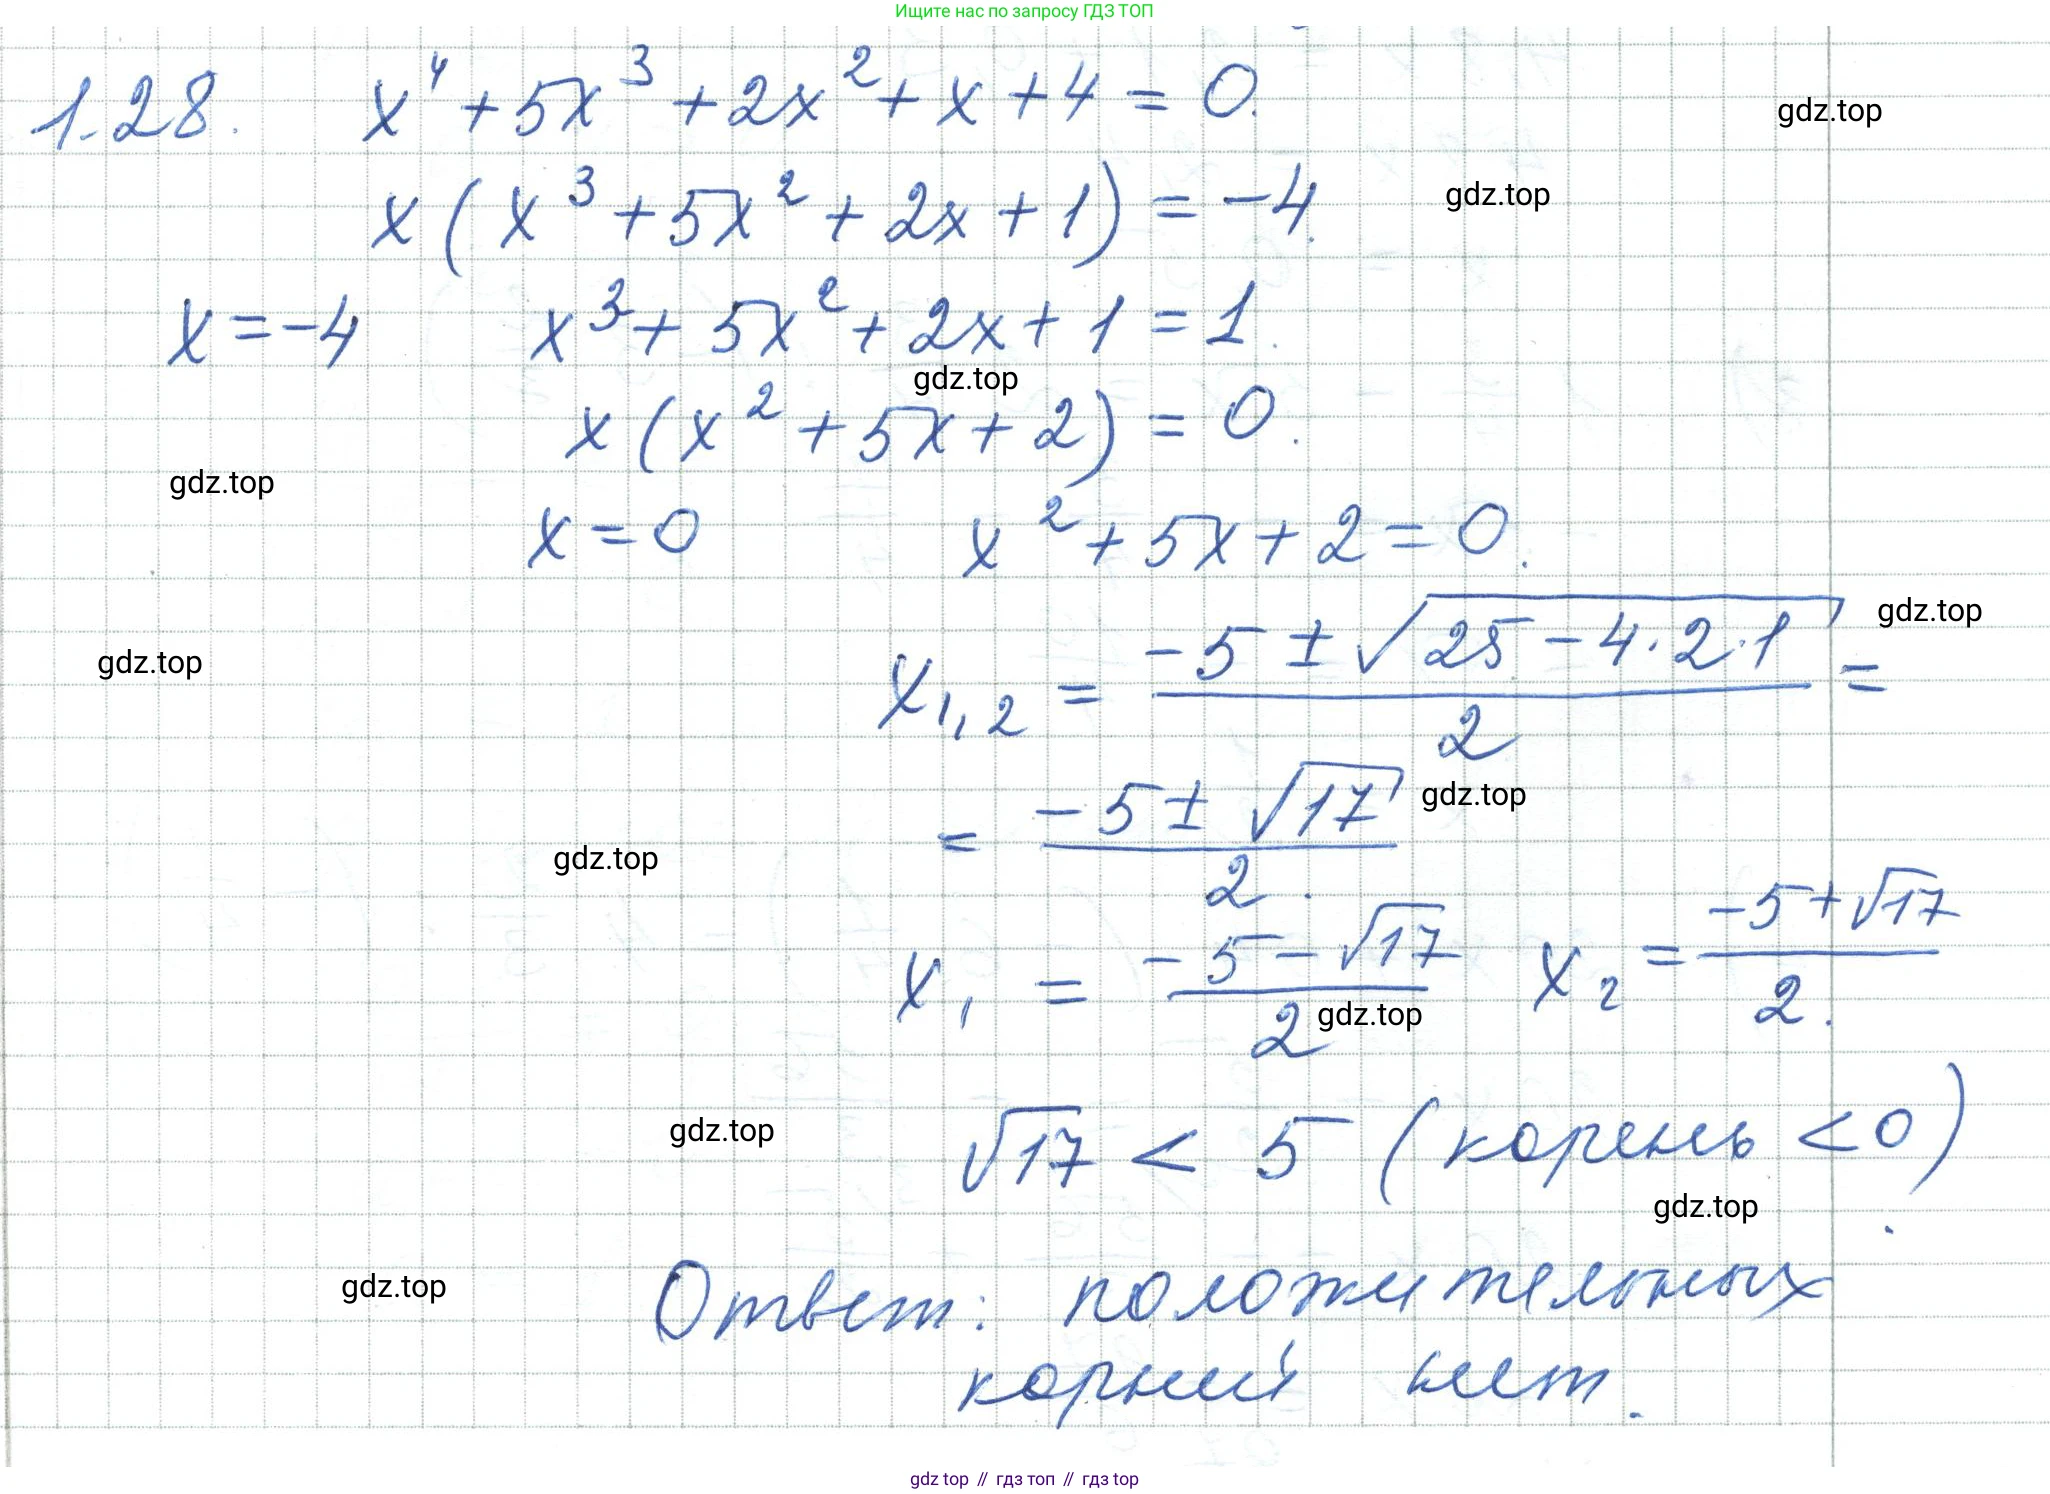 Ищите нас по запросу ГДЗ ТОП
1.28. x⁴ + 5x³ + 2x² + x + 4 = 0.
gdz.top
x(x³ + 5x² + 2x + 1) = -4.
gdz.top
x = -4 x³ + 5x² + 2x + 1 = 1.
gdz.top
x(x² + 5x + 2) = 0.
gdz.top
x = 0 x² + 5x + 2 = 0.
gdz.top
x₁,₂ = (-5 ± √(25 - 4·2·1))/2 =
gdz.top
= (-5 ± √17)/2.
gdz.top
gdz.top
x₁ = (-5 - √17)/2 x₂ = (-5 + √17)/2.
gdz.top
√17 < 5 (корень < 0).
gdz.top
gdz.top
Ответ: положительных
gdz.top
корней нет.
gdz top // гдз топ // гдз top